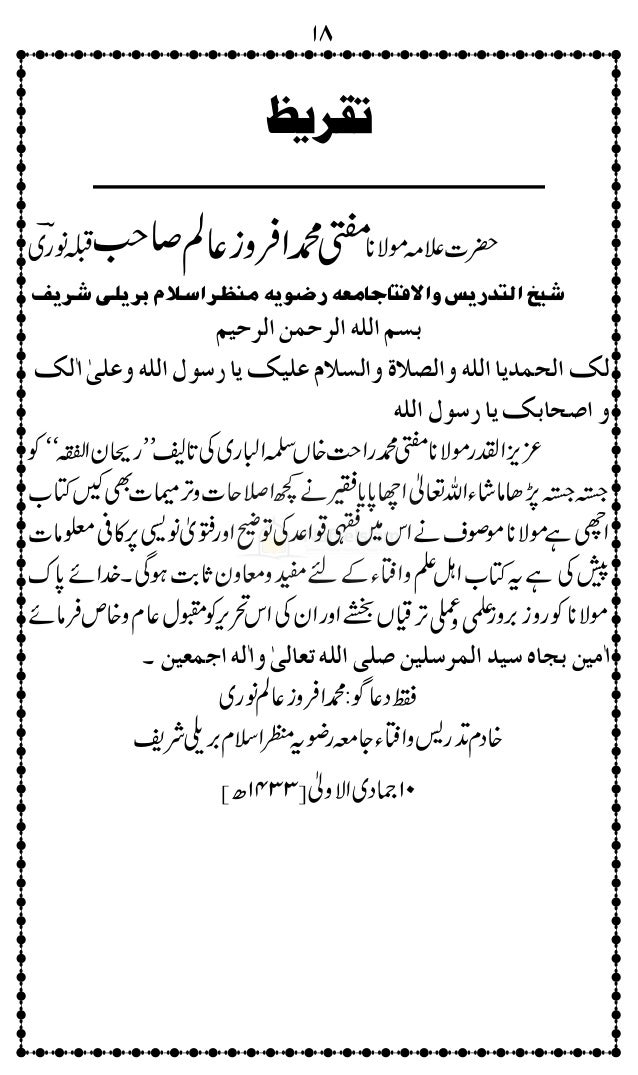 ۱۸
تقریظ
حضرت علامہ مولانا مفتی محمد افروز عالم صاحب قبلہ نوری
شیخ التدریس والافتاجامعہ رضویہ منظر اسلام بریلی شریف
بسم اللہ الرحمن الرحیم
لک الحمدیا اللہ والصلاۃ والسلام علیک یا رسول اللہ وعلیٰ اٰلک
و اصحابک یا رسول اللہ
عزیز القدر مولانا مفتی محمد راحت خاں سلمہ الباری کی تالیف’’ریحان الفقہ‘‘ کو
جستہ جستہ پڑھا ماشاءاللہ تعالیٰ اچھا پایا فقیر نے کچھ اصلاحات وترمیمات بھی کیں کتاب
اچھی ہے مولانا موصوف نے اس میں فقہی قواعد کی توضیح اور فتویٰ نویسی پر کافی معلومات
پیش کی ہے یہ کتاب اہل علم وافتاء کے لئے مفید ومعاون ثابت ہوگی۔خدائے پاک
مولانا کو روز بروز علمی و عملی ترقیاں بخشے اور ان کی اس تحریر کو مقبول عام وخاص فرمائے
اٰمین بجاہ سید المرسلین صلی اللہ تعالیٰ واٰلہ اجمعین ۔
فقط دعا گو: محمد افروز عالم نوری
خادم تدریس وافتاء جامعہ رضویہ منظر اسلام بریلی شریف
۱۰جمادی الاولیٰ[۱۴۳۳ھ]